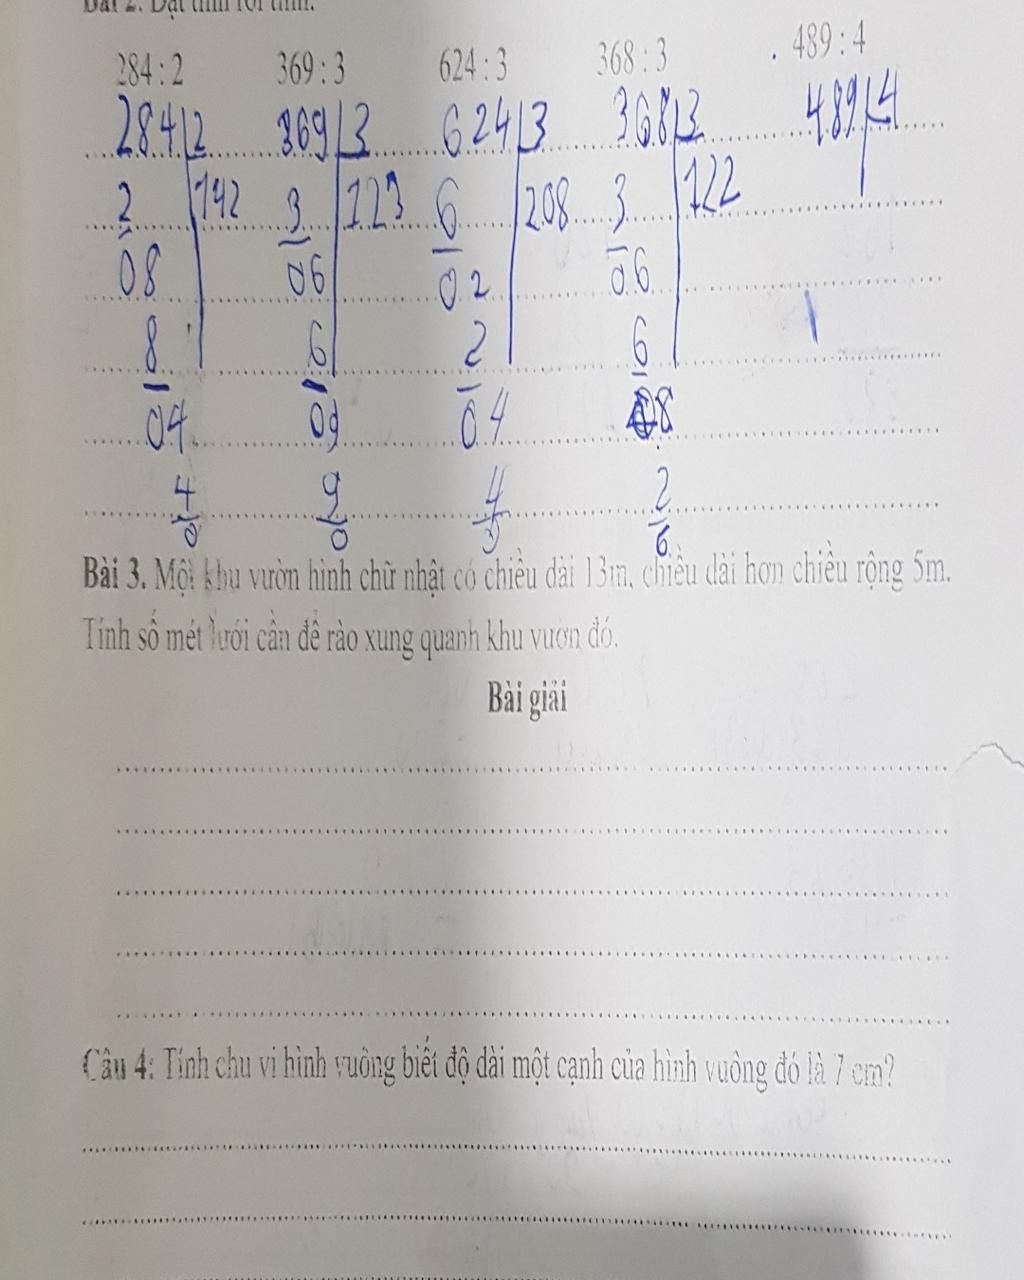 Bài 2. Đặt tính rồi tính.
284 : 2 369 : 3 624 : 3 368 : 3 489 : 4
284 2 369 3 624 3 368 3 489 4
2 142 3 123 6 208 3 122
08 06 02 06
8 6 2 6
04 09 04 08
4 9 4 2
0 0 0 6
Bài 3. Một khu vườn hình chữ nhật có chiều dài 13m, chiều dài hơn chiều rộng 5m.
Tính số mét lưới cần để rào xung quanh khu vườn đó.
Bài giải
Câu 4: Tính chu vi hình vuông biết độ dài một cạnh của hình vuông đó là 7 cm?